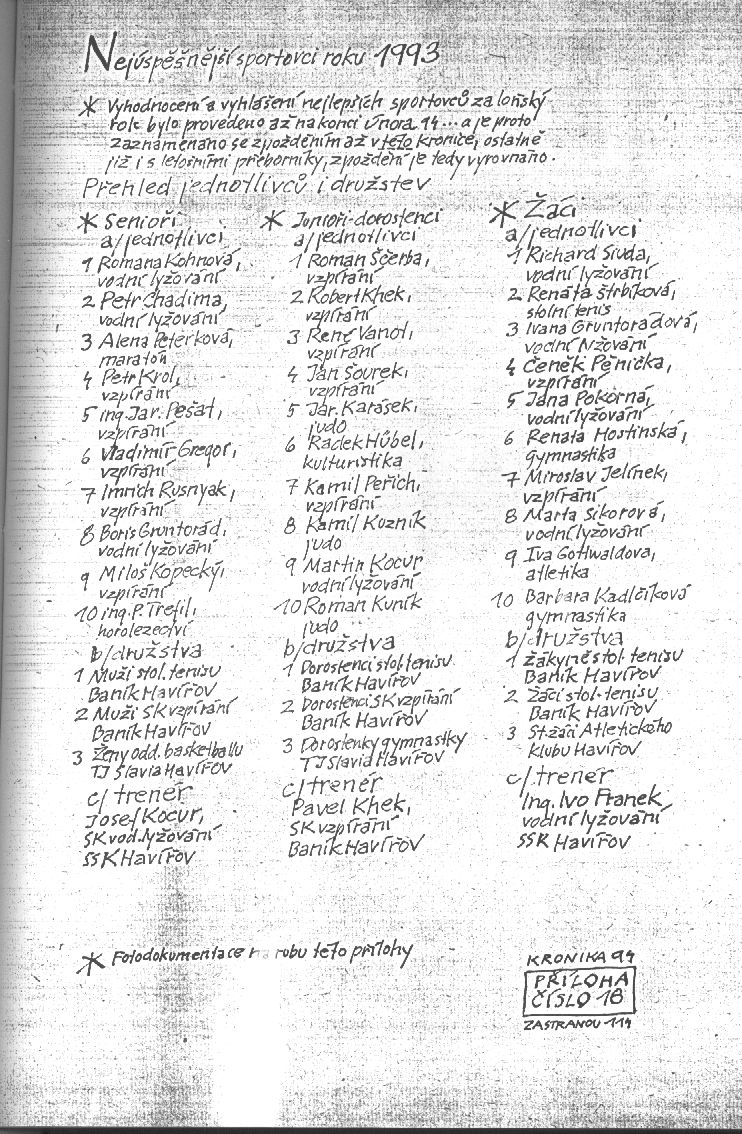 Nejúspěšnější sportovci roku 1993
* Vyhodnocení a vyhlášení nejlepších sportovců za loňský
rok bylo provedeno až na konci února 94... a je proto
zaznamenáno se zpožděním až v této kronice, ostatně
již i s letošními přeborníky, zpoždění je tedy vyrovnáno.
Přehled jednotlivců i družstev
* Senioři
a/jednotlivci
1 Romana Kohnová,
vodní lyžování
2 Petr Chadima,
vodní lyžování
3 Alena Peterková,
maratón
4 Petr Krol,
vzpírání
5 ing. Jar. Pešat,
vzpírání
6 Vladimír Gregor,
vzpírání
7 Imrich Rusnyak,
vzpírání
8 Boris Gruntorád,
vodní lyžování
9 Miloš Kopecký,
vzpírání
10 ing. P. Trefil,
horolezectví
b/družstva
1 Muži stol. tenisu
Baník Havířov
2 Muži SK vzpírání
Baník Havířov
3 Ženy odd. basketballu
TJ Slavia Havířov
c/trenér
Josef Kocur,
SK vod. lyžování
SSK Havířov
* Junioři-dorostenci
a/jednotlivci
1 Roman Ščerba,
vzpírání
2 Robert Khek,
vzpírání
3 René Vanot,
vzpírání
4 Jan Šourek,
vzpírání
5 Jar. Karásek,
judo
6 Radek Hübel,
kulturistika
7 Kamil Peřich,
vzpírání
8 Kamil Kozník
judo
9 Martin Kocur
vodní lyžování
10 Roman Kuník
judo
b/družstva
1 Dorostenci stol. tenisu
Baník Havířov
2 Dorostenci SK vzpírání
Baník Havířov
3 Dorostenky gymnastky
TJ Slavia Havířov
c/trenér
Pavel Khek,
SK vzpírání
Baník Havířov
* Žáci
a/jednotlivci
1 Richard Siuda,
vodní lyžování
2 Renáta Štrbíková,
stolní tenis
3 Ivana Gruntorádová,
vodní lyžování
4 Čeněk Pěnička,
vzpírání
5 Jana Pokorná,
vodní lyžování
6 Renata Hostinská,
gymnastika
7 Miroslav Jelínek,
vzpírání
8 Marta Sikorová,
vodní lyžování
9 Iva Gottwaldova,
atletika
10 Barbara Kadlčíková
gymnastika
b/družstva
1 žákyně stol. tenisu
Baník Havířov
2 Žáci stol. tenisu
Baník Havířov
3 St. žáci Atletického
klubu Havířov
c/trenér
Ing. Ivo Franek,
vodní lyžování
SSK Havířov
* Fotodokumentace na rubu této přílohy
KRONIKA 94
PŘÍLOHA
ČÍSLO 18
ZA STRANOU 114